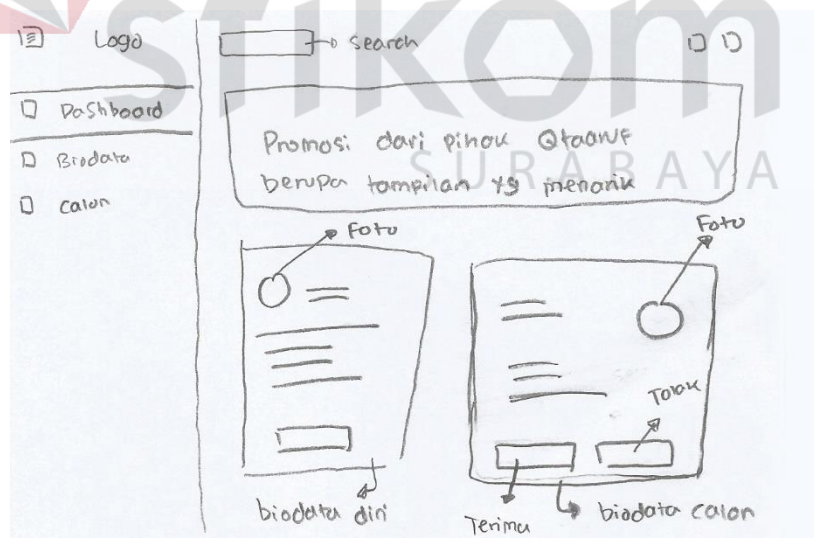 stikom
SURABAYA
Logo
search
Dashboard
Biodata
calon
Promosi dari pihak Qtaaruf
berupa tampilan yg menarik
Foto
Foto
Tolak
biodata diri
Terima
biodata calon